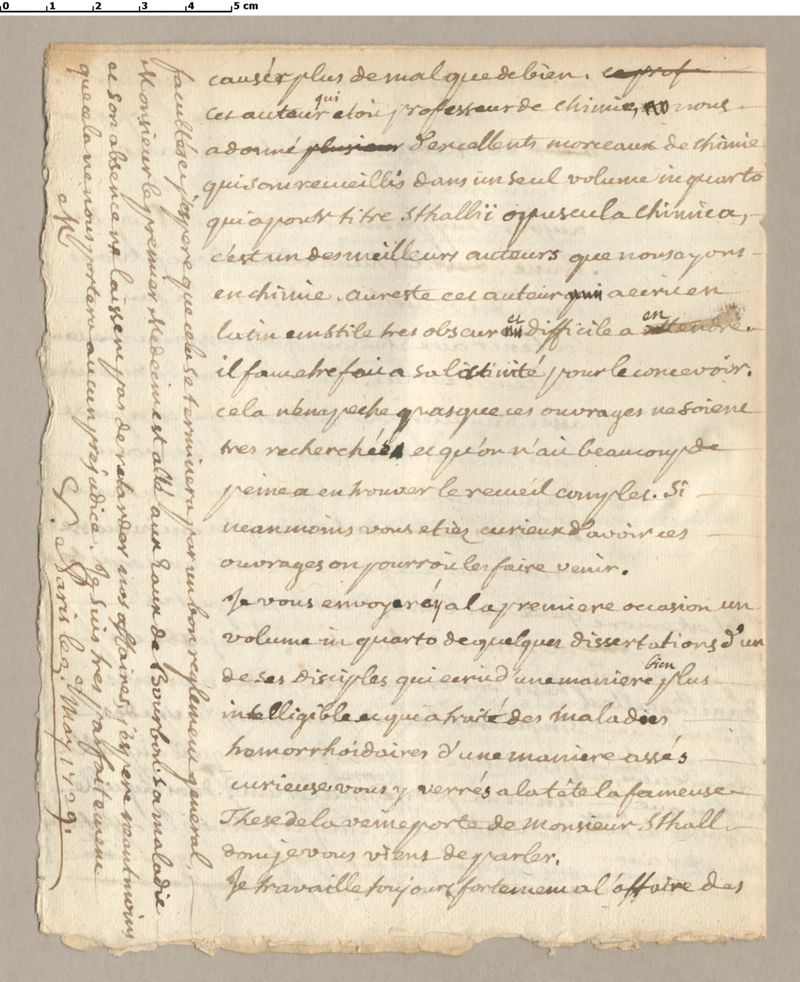 0 1 2 3 4 5 cm
causér plus de mal que de bien. ce prof
cet auteur qui etoit professeur de chimie, nous
a donné plusieur d'excellents morceaux de chimie
qui sont recueillis dans un seul volume in quarto
qui a pour titre Sthallii opuscula chimica,
c'est un des meilleurs auteurs que nous ayons
en chimie. au reste cet auteur qui a ecrit en
latin e un stile tres obscur et difficile a entendre.
il faut etre fait a sa latinité pour le concevoir.
cela n'empeche pas que ces ouvrages ne soient
tres recherchées et qu'on n'ait beaucoup de
peine a en trouver le recueil complet. Si
neanmoins vous etiez curieux d'avoir ces
ouvrages on pourroit les faire venir.
Je vous envoyeréy a la premiere occasion un
volume in quarto de quelques dissertations d'un
de ses disciples qui ecrit d'une maniere bien plus
intelligible et qui a traité des maladies
hemorrhoidaires d'une maniere assés
curieuse. vous y verrés a la tête la fameuse
These de la veine porte de Monsieur Sthall
dont je vous viens de parler.
Je travaille toujours fortement a l'affaire des
facultés et j'espere que cela se terminera par un bon réglement general,
Monsieur le premier Medecin est allé aux Eaux de Bourbon. sa maladie
et son absence ne laissent pas de retarder nos affaires, j'espere neantmoins
que cela ne nous portera aucun prejudice. Je suis tres parfaitement
M
V.
a Paris le 2. May 1729.